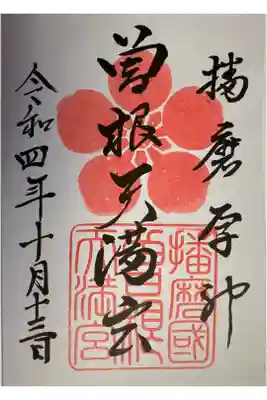 播磨
神
曽根天満宮
令和四年十月十三日
播磨國
曽根
天満宮